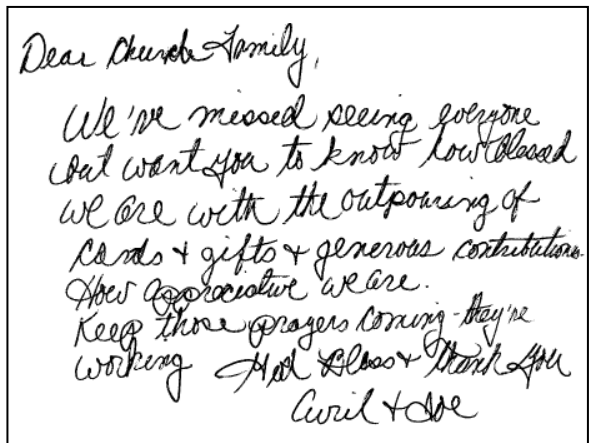 Dear Church Family,
We've missed seeing everyone
but want you to know how blessed
we are with the outpouring of
cards + gifts + generous contributions.
How appreciative we are.
Keep those prayers coming - they're
working God Bless + Thank You
Avril + Joe